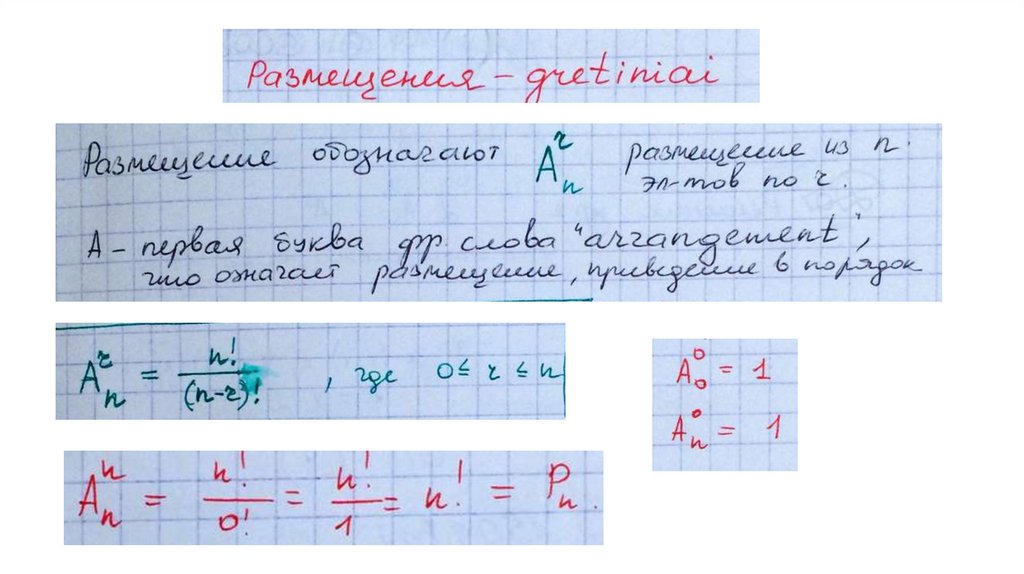 Размещения - gretiniai
Размещение обозначают A_n^r размещение из n
эл-тов по r.
A - первая буква фр. слова "arrangement",
что означает размещение, приведение в порядок
A_n^r = n!/(n-r)! , где 0 ≤ r ≤ n
A_0^0 = 1
A_n^0 = 1
A_n^n = n!/0! = n!/1 = n! = P_n.